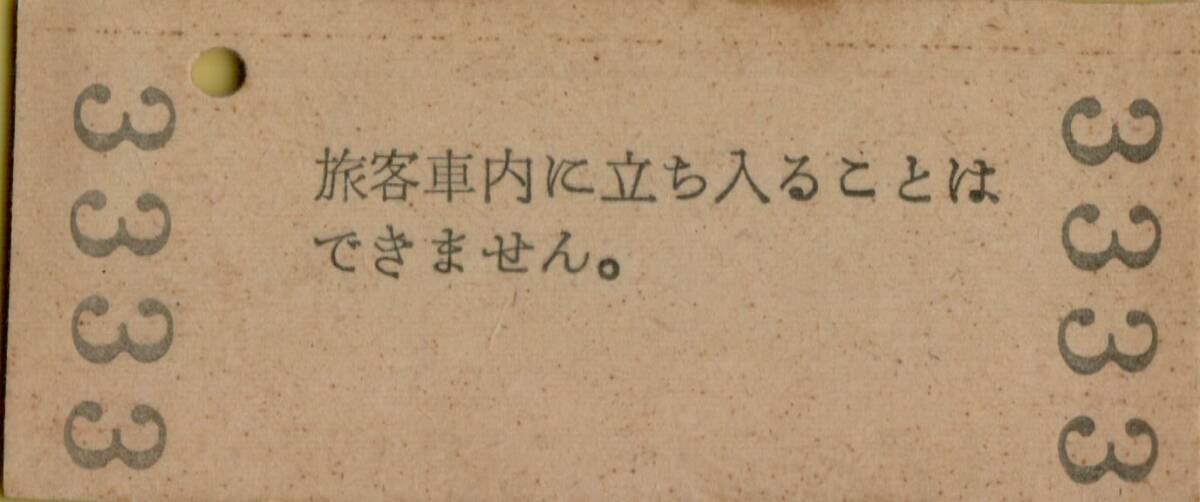 3333
旅客車内に立ち入ることは
できません。
3333